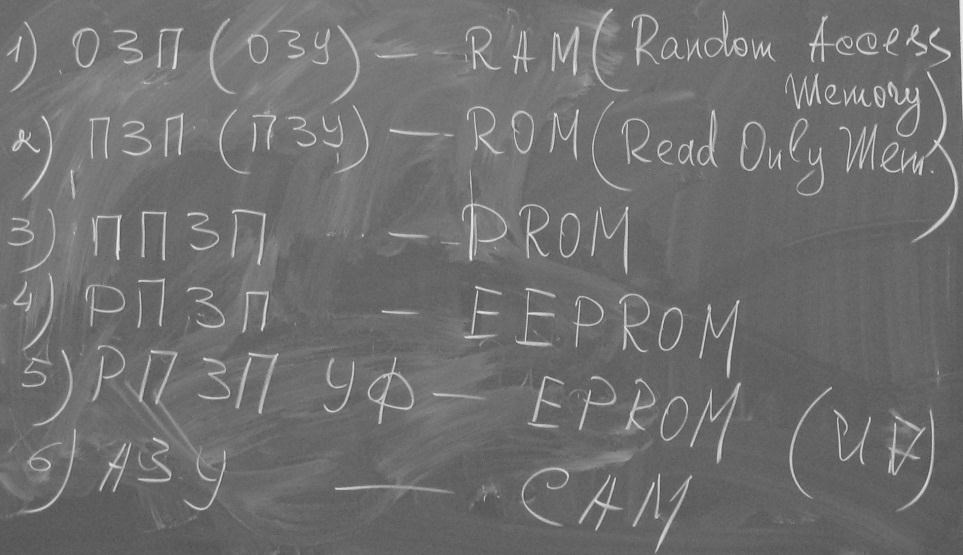 1) ОЗП (ОЗУ) — RAM (Random Access
Memory)
2) ПЗП (ПЗУ) — ROM (Read Only Mem.)
3) ППЗП — PROM
4) РПЗП — EEPROM
5) РПЗП УФ — EPROM
6) АЗУ — CAM